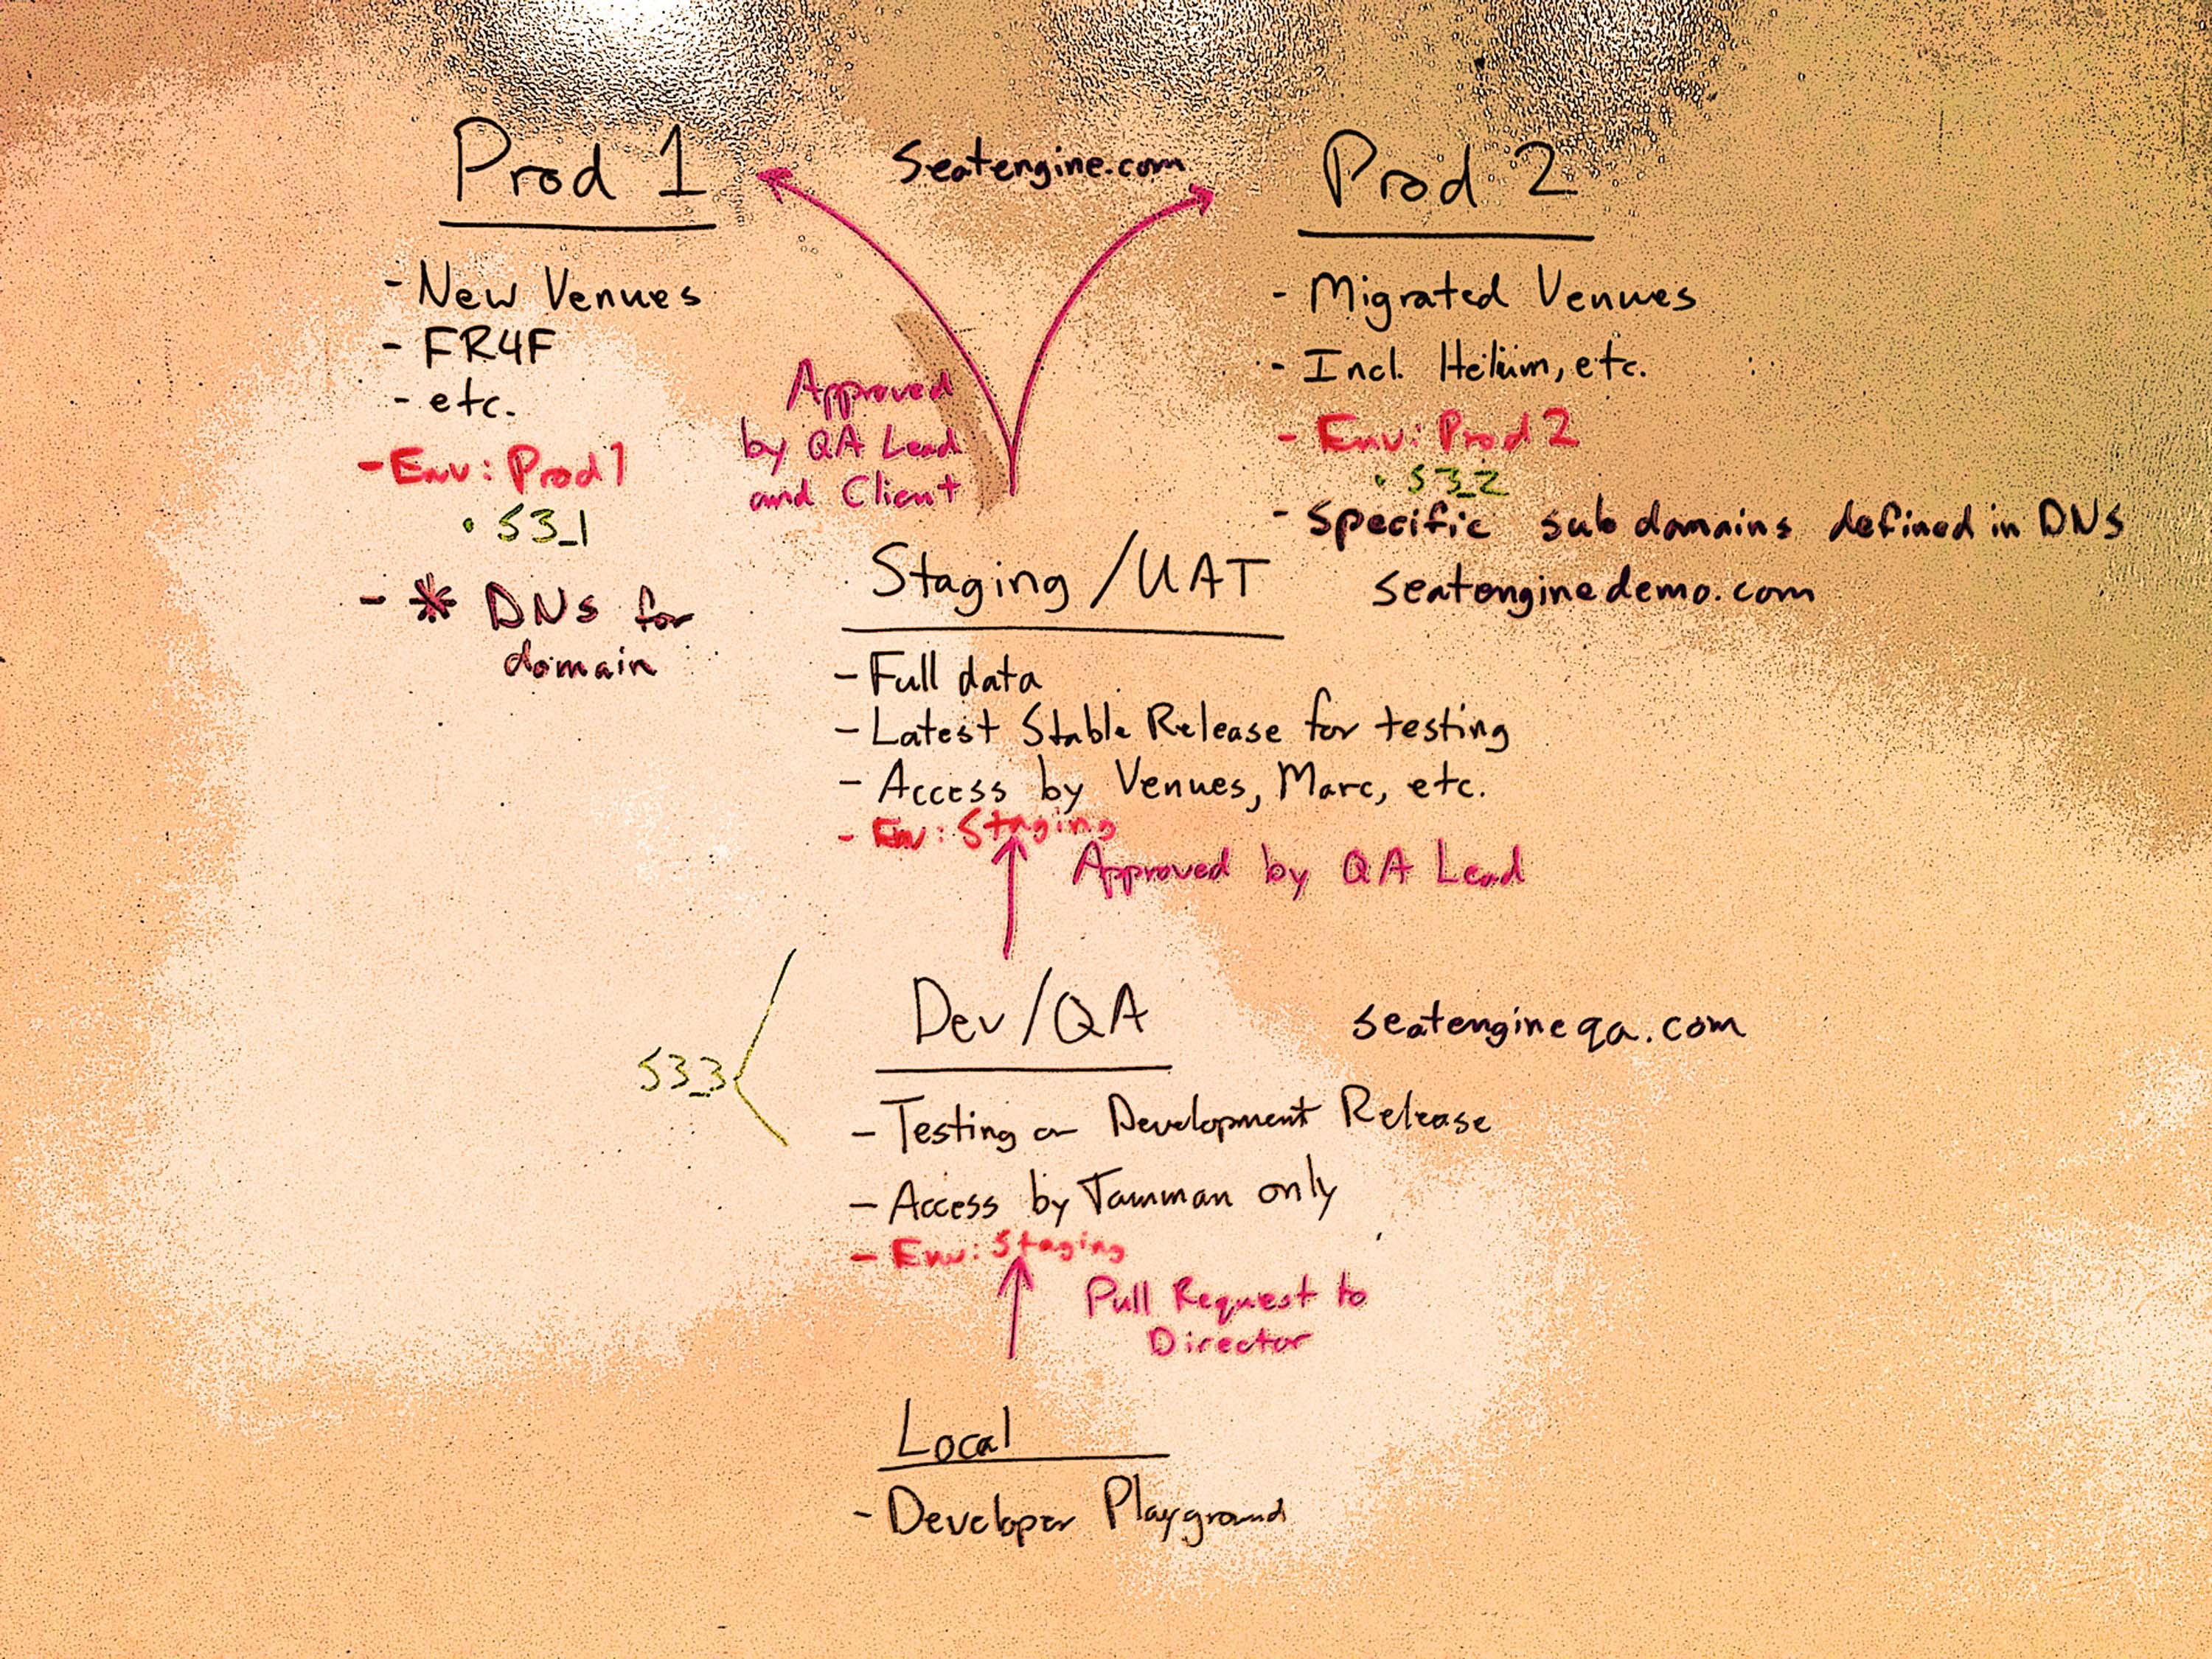 Prod 1
- New Venues
- FR4F
- etc.
- Env: Prod 1
• S3_1
- * DNS for
domain
Seatengine.com
Approved
by QA Lead
and Client
Prod 2
- Migrated Venues
- Incl. Helium, etc.
- Env: Prod 2
• S3_2
- Specific sub domains defined in DNS
Staging / UAT
seatenginedemo.com
- Full data
- Latest Stable Release for testing
- Access by Venues, Marc, etc.
- Env: Staging
Approved by QA Lead
S3_3
Dev / QA
seatengineqa.com
- Testing on Development Release
- Access by Tamman only
- Env: Staging
Pull Request to
Director
Local
- Developer Playground